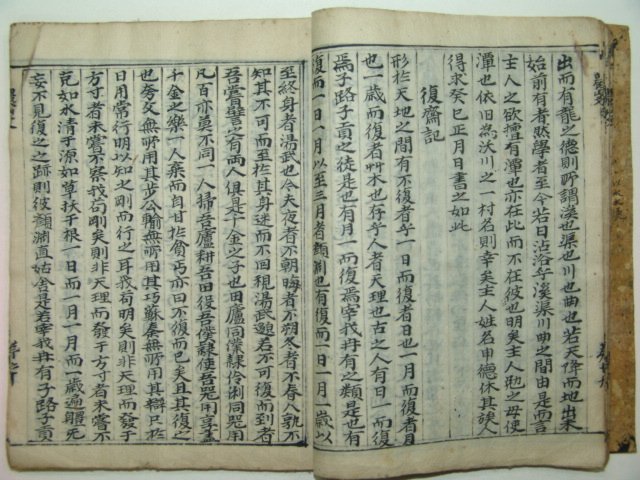 出而有龍之德則所謂溪也渠也川也曲也若天作而地出未
始前有者然學者至今若日沾洛乎溪渠川曲之間由是而言
主人之欲擅有潭也亦在此而不在彼也明矣主人勉之毋使
潭也依旧為沃川之一村名則幸矣主人姓名申德休其族人
得求癸巳正月日書之如此
復齋記
形於天地之間有不復者乎一日而復者日也一月而復者月
也一歲而復者艸木也存乎人者天理也古之人有日一而復
焉子路子貢之徒是也有月一而復焉宰我冉有之類是也有
復而一日一月以至三月者顏淵也有復而一日一月一歲以
至終身者湯武也今夫夜者不朝晦者不朔冬者不春人孰不
知其不可而至於其身迷而不回視湯武邈若不可復而到者
吾嘗譬之有兩人俱是千金之子也田廬同僕隸伶俐同器用
凡百亦莫不同一人掃吾廬耕吾田役吾僕隸使吾器用享盡
千金之樂一人棄而自甘於貧丐亦曰不復而已矣且其復之
也勇父無所用其步公輸無所用其巧蘇秦無所用其辯只於
日用常行明以知之剛而行之耳我苟明矣則非天理而發于
方寸者未嘗不察我苟剛矣則非天理而發于方寸者未嘗不
克如水清于源如草扶于根一日而一月一月而一歲遍體无
妄不見復之之跡則彼顏淵直姑舍是若宰我冉有子路子貢